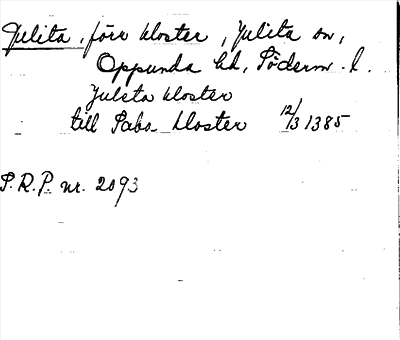 Julita, förr kloster, Julita sn,
Oppunda hd, Söderm. l.
Julsta kloster
till Saba kloster 12/3 1385
S.R.P. nr. 2093